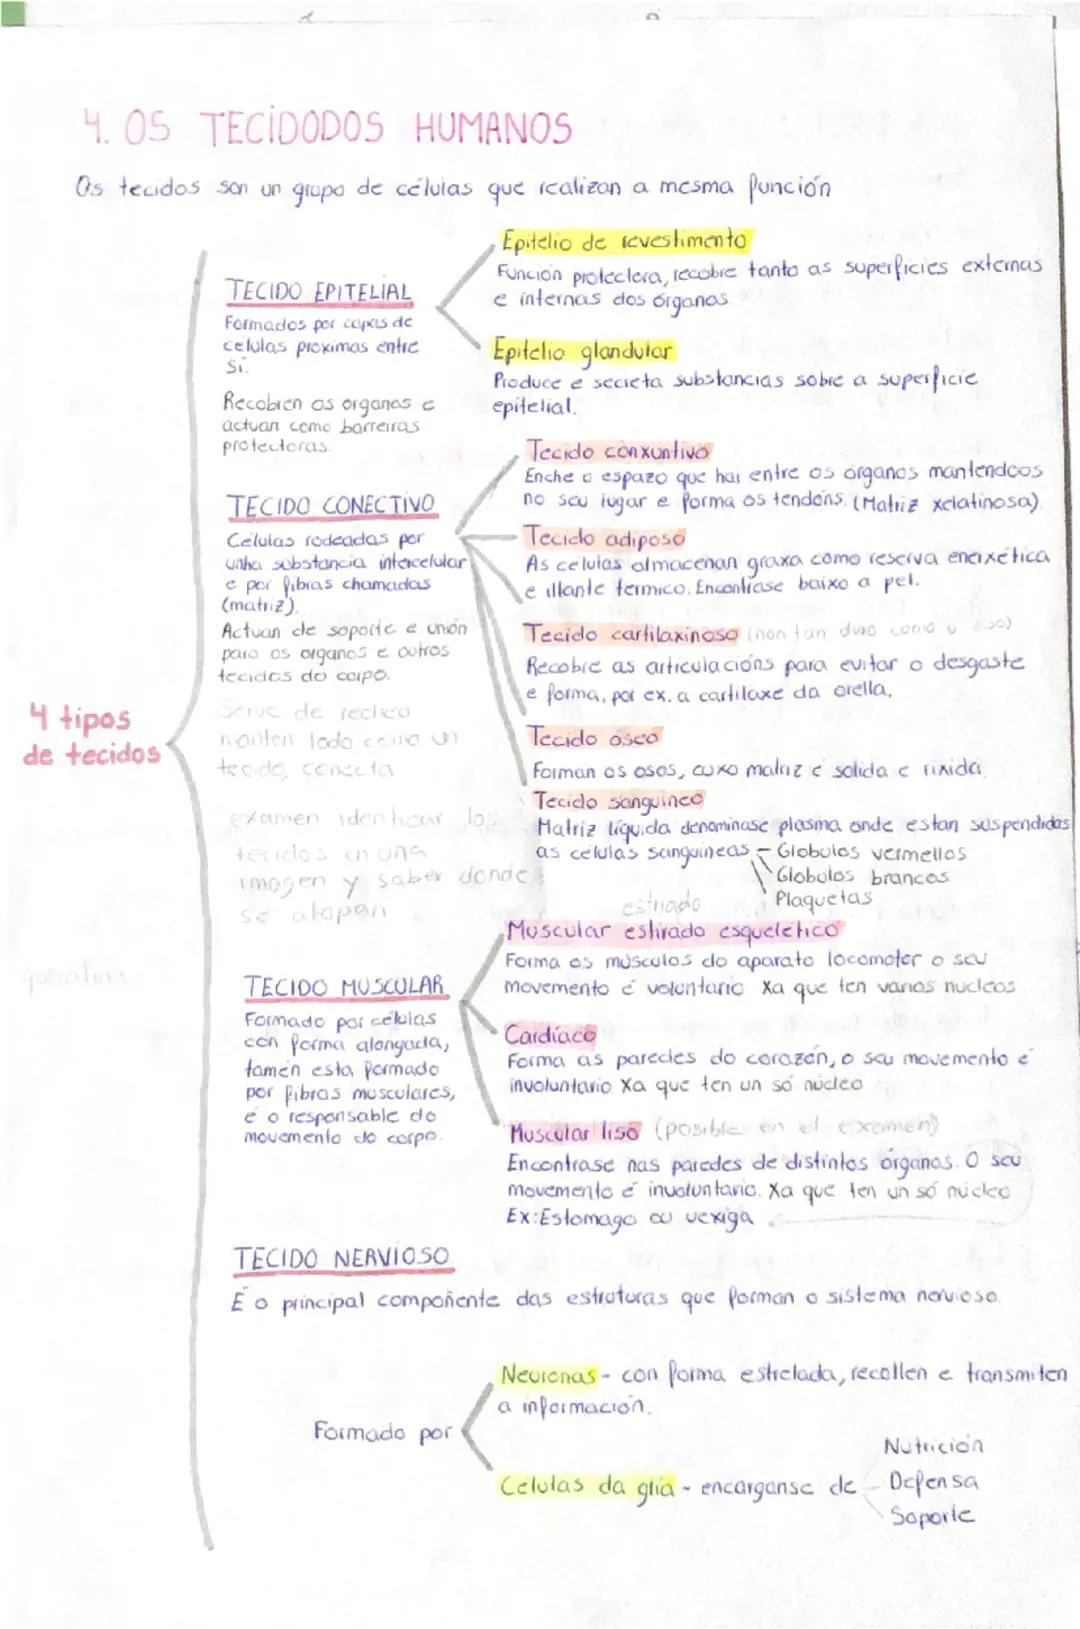 4. OS TECIDODOS HUMANOS
Os tecidos son un grupo de células que realizan a mesma función
4 tipos
de tecidos
TECIDO EPITELIAL
Formados por capas de
celulas proximas entre
si.
Recobren os organos e
actuan como barreiras
protectoras.
Epitelio de revestimento
Función protectora, recobre tanto as superficies externas
e internas dos órganos.
Epitelio glandular
Produce e secreta substancias sobre a superficie
epitelial.
TECIDO CONECTIVO
Celulas rodeadas por
unha substancia intercelular
e por fibras chamadas
(matriz).
Actuan de soporte e unión
para os organos e outros
tecidos do corpo.
Serve de
manten todo como un
tecido, conecta
examen identificar los
tecidos en una
imagen y saber donde
se atopan
Tecido conxuntivo
Enche o espazo que hai entre os órganos mantendoos
no seu lugar e forma os tendóns. (Matriz xelatinosa).
Tecido adiposo
As celulas almacenan graxa como reserva enerxética
e illante termico. Encontrase baixo a pel.
Tecido cartilaxinoso (non tan duro como o oso)
Recobre as articulacións para evitar o desgaste
e forma, por ex. a cartilaxe da orella.
Tecido óseo
Forman os osos, cuxo matriz é solida e rixida.
Tecido sanguíneo
Matriz líquida denominase plasma onde estan suspendidas
as células sanguineas - Globulos vermellos
Globulos brancos
Plaquetas
estriado
TECIDO MUSCULAR
Formado por células
con forma alongada,
tamén esta formado
por fibras musculares,
é o responsable do
movemento do corpo.
Muscular estirado esqueletico
Forma os músculos do aparato locomotor o seu
movemento é voluntario Xa que ten varios nucleos
Cardíaco
Forma as paredes do corazón, o seu movemento é
involuntario Xa que ten un só núcleo
Muscular liso (posible en el examen)
Encontrase nas paredes de distintos órganos. O seu
movemento é involuntario. Xa que ten un só núcleo
Ex: Estomago ou vexiga
TECIDO NERVIOSO
É o principal compoñente das estruturas que forman o sistema nervioso.
Formado por
Neuronas - con forma estrelada, recollen e transmiten
a información.
Celulas da glía - encarganse de
Nutrición
Defensa
Soporte